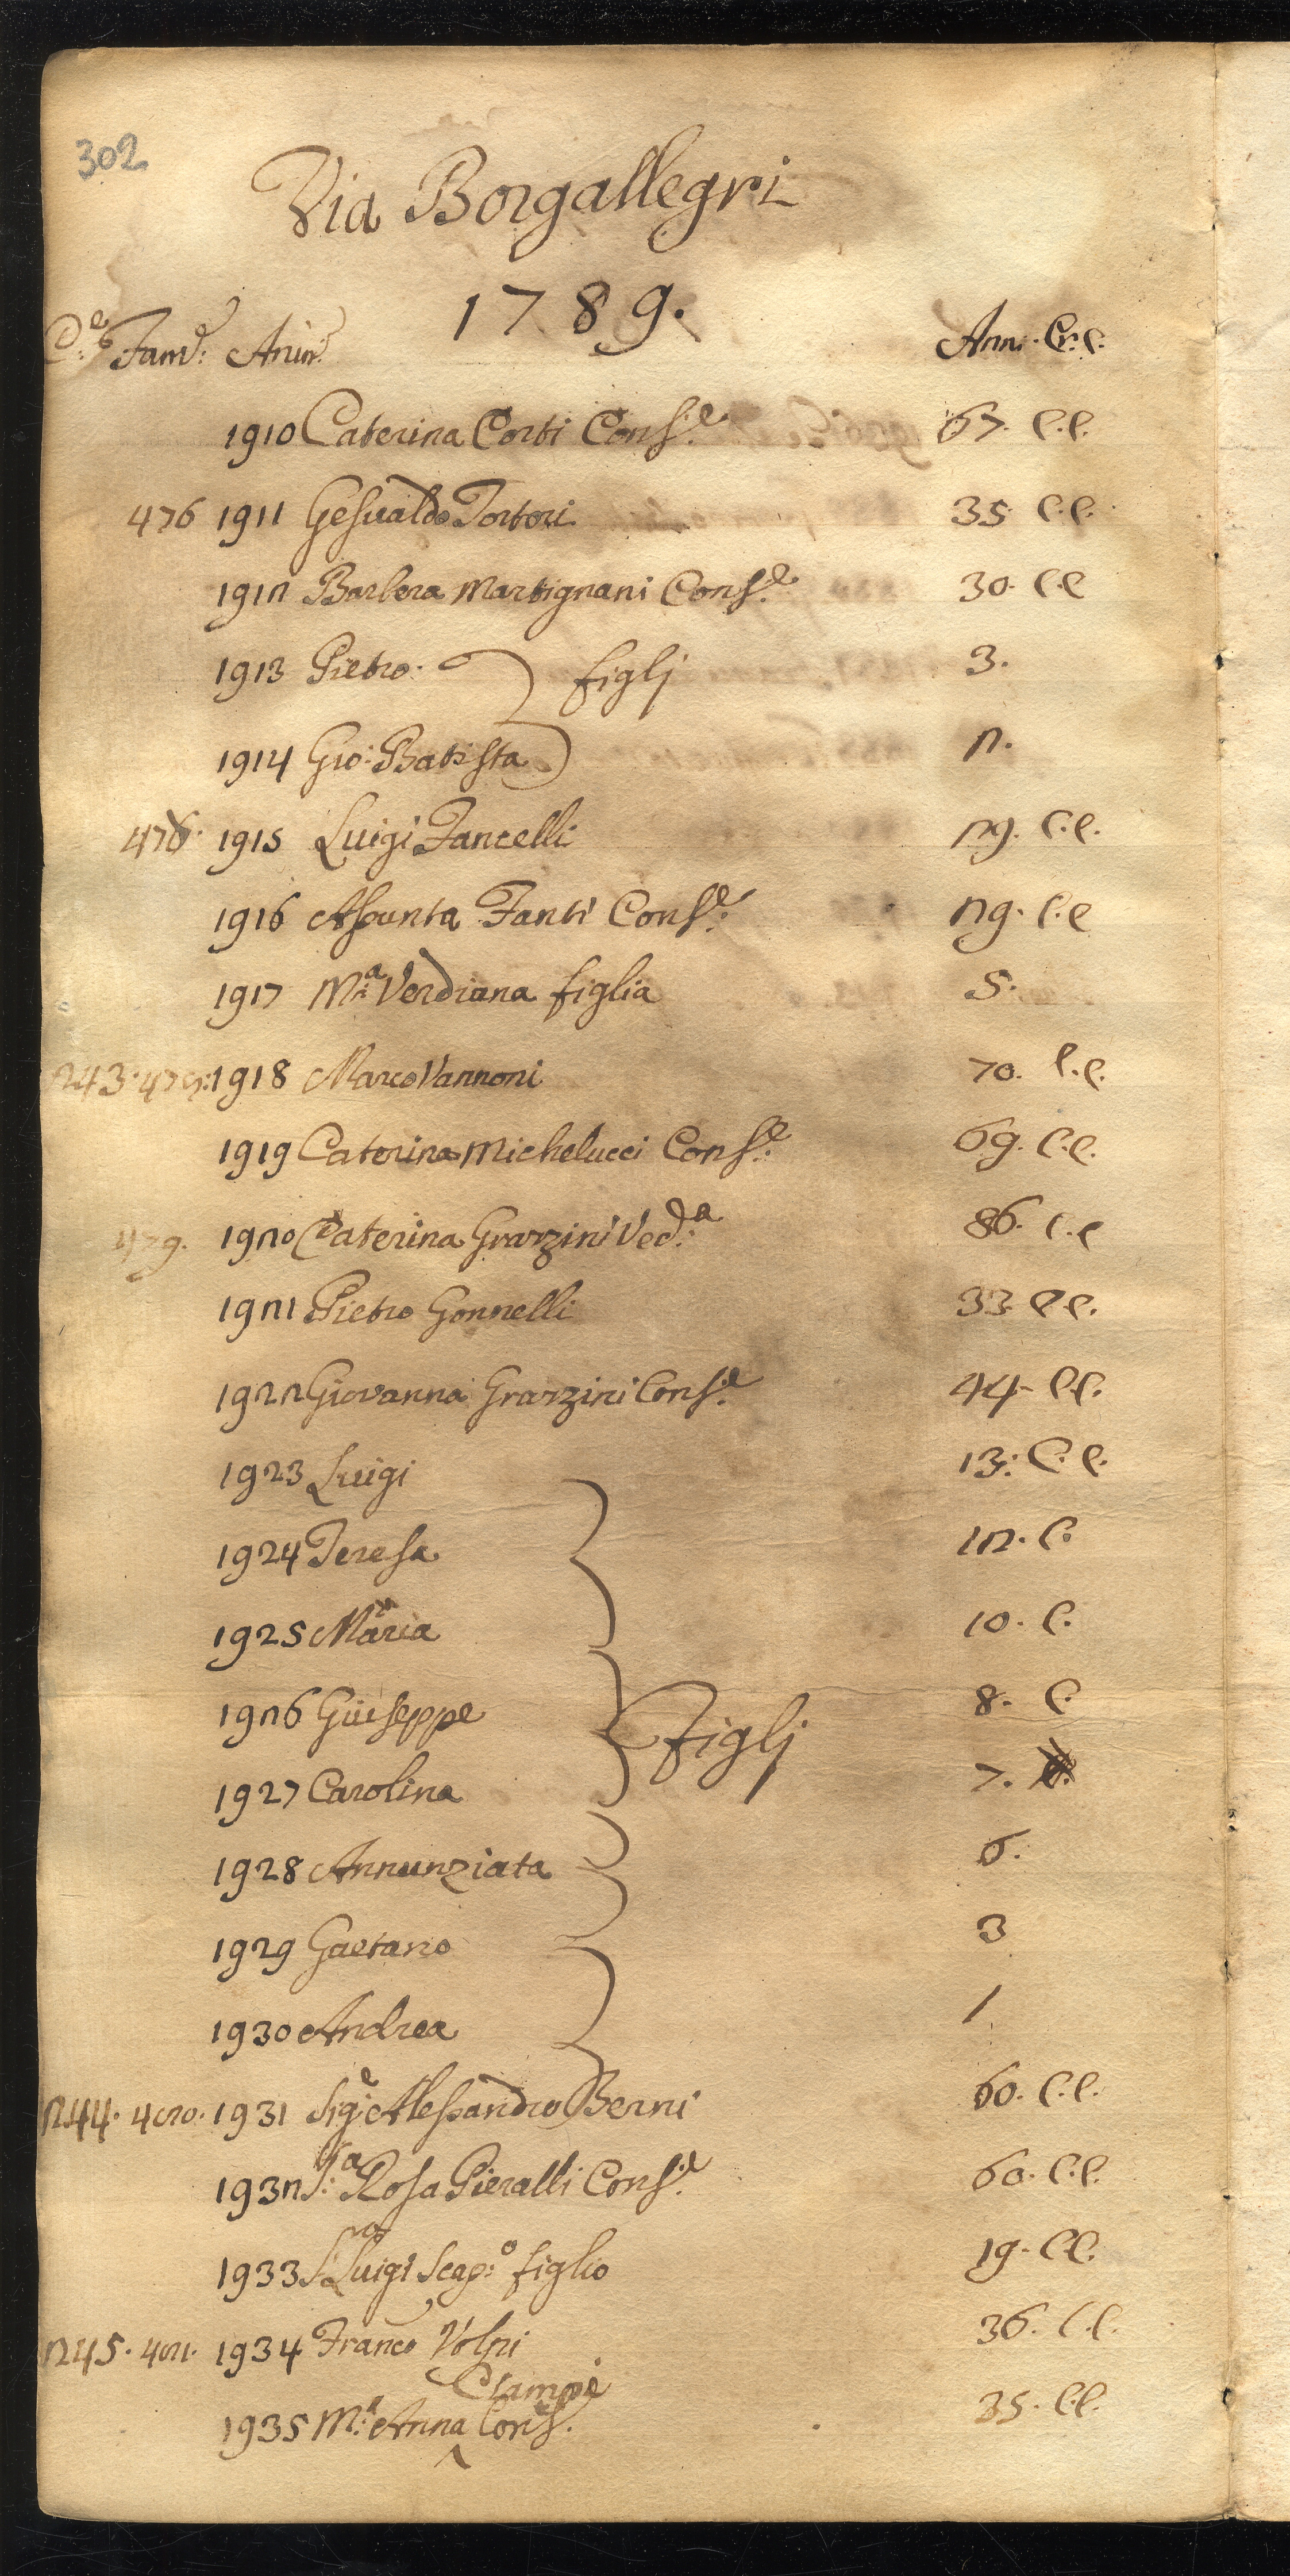 302
Via Borgallegri
1789.
C.e Fam: Anim: Ann. Cr. C.
1910 Caterina Corti Cons.e 67. C.C.
476 1911 Gesualdo Tortori 35 C.C.
1912 Barbera Martignani Cons.e 30. C.C
1913 Pietro. figlj 3.
1914 Gio: Batista 2.
1915 Luigi Fancelli 29. C.C.
1916 Assunta Fanti Cons.e 29. C.C
1917 M.a Verdiana figlia 5.
243. 1918 Marco Vannoni 70. C.C.
1919 Caterina Michelucci Cons.e 69. C.C.
479. 1920 Caterina Grazzini Ved.a 86. C.C
1921 Pietro Gonnelli 33 C.C.
1922 Giovanna Grazzini Cons.e 44. C.C.
1923 Luigi 13. C.C.
1924 Teresa 12. C.
1925 Maria 10. C.
1926 Giuseppe Figlj 8. C.
1927 Carolina 7.
1928 Annunziata 6.
1929 Gaetano 3
1930 Andrea 1.
244. 480. 1931 Sig.e Alessandro Berni 60. C.C.
1932 S.a Rosa Pieralli Cons.e 60. C.C.
1933 S. Luigi Scap.o figlio 19. C.C.
245. 481. 1934 Franco Volpi 36. C.C.
Ciampi
1935 M.a Anna Cons. 35. C.C.